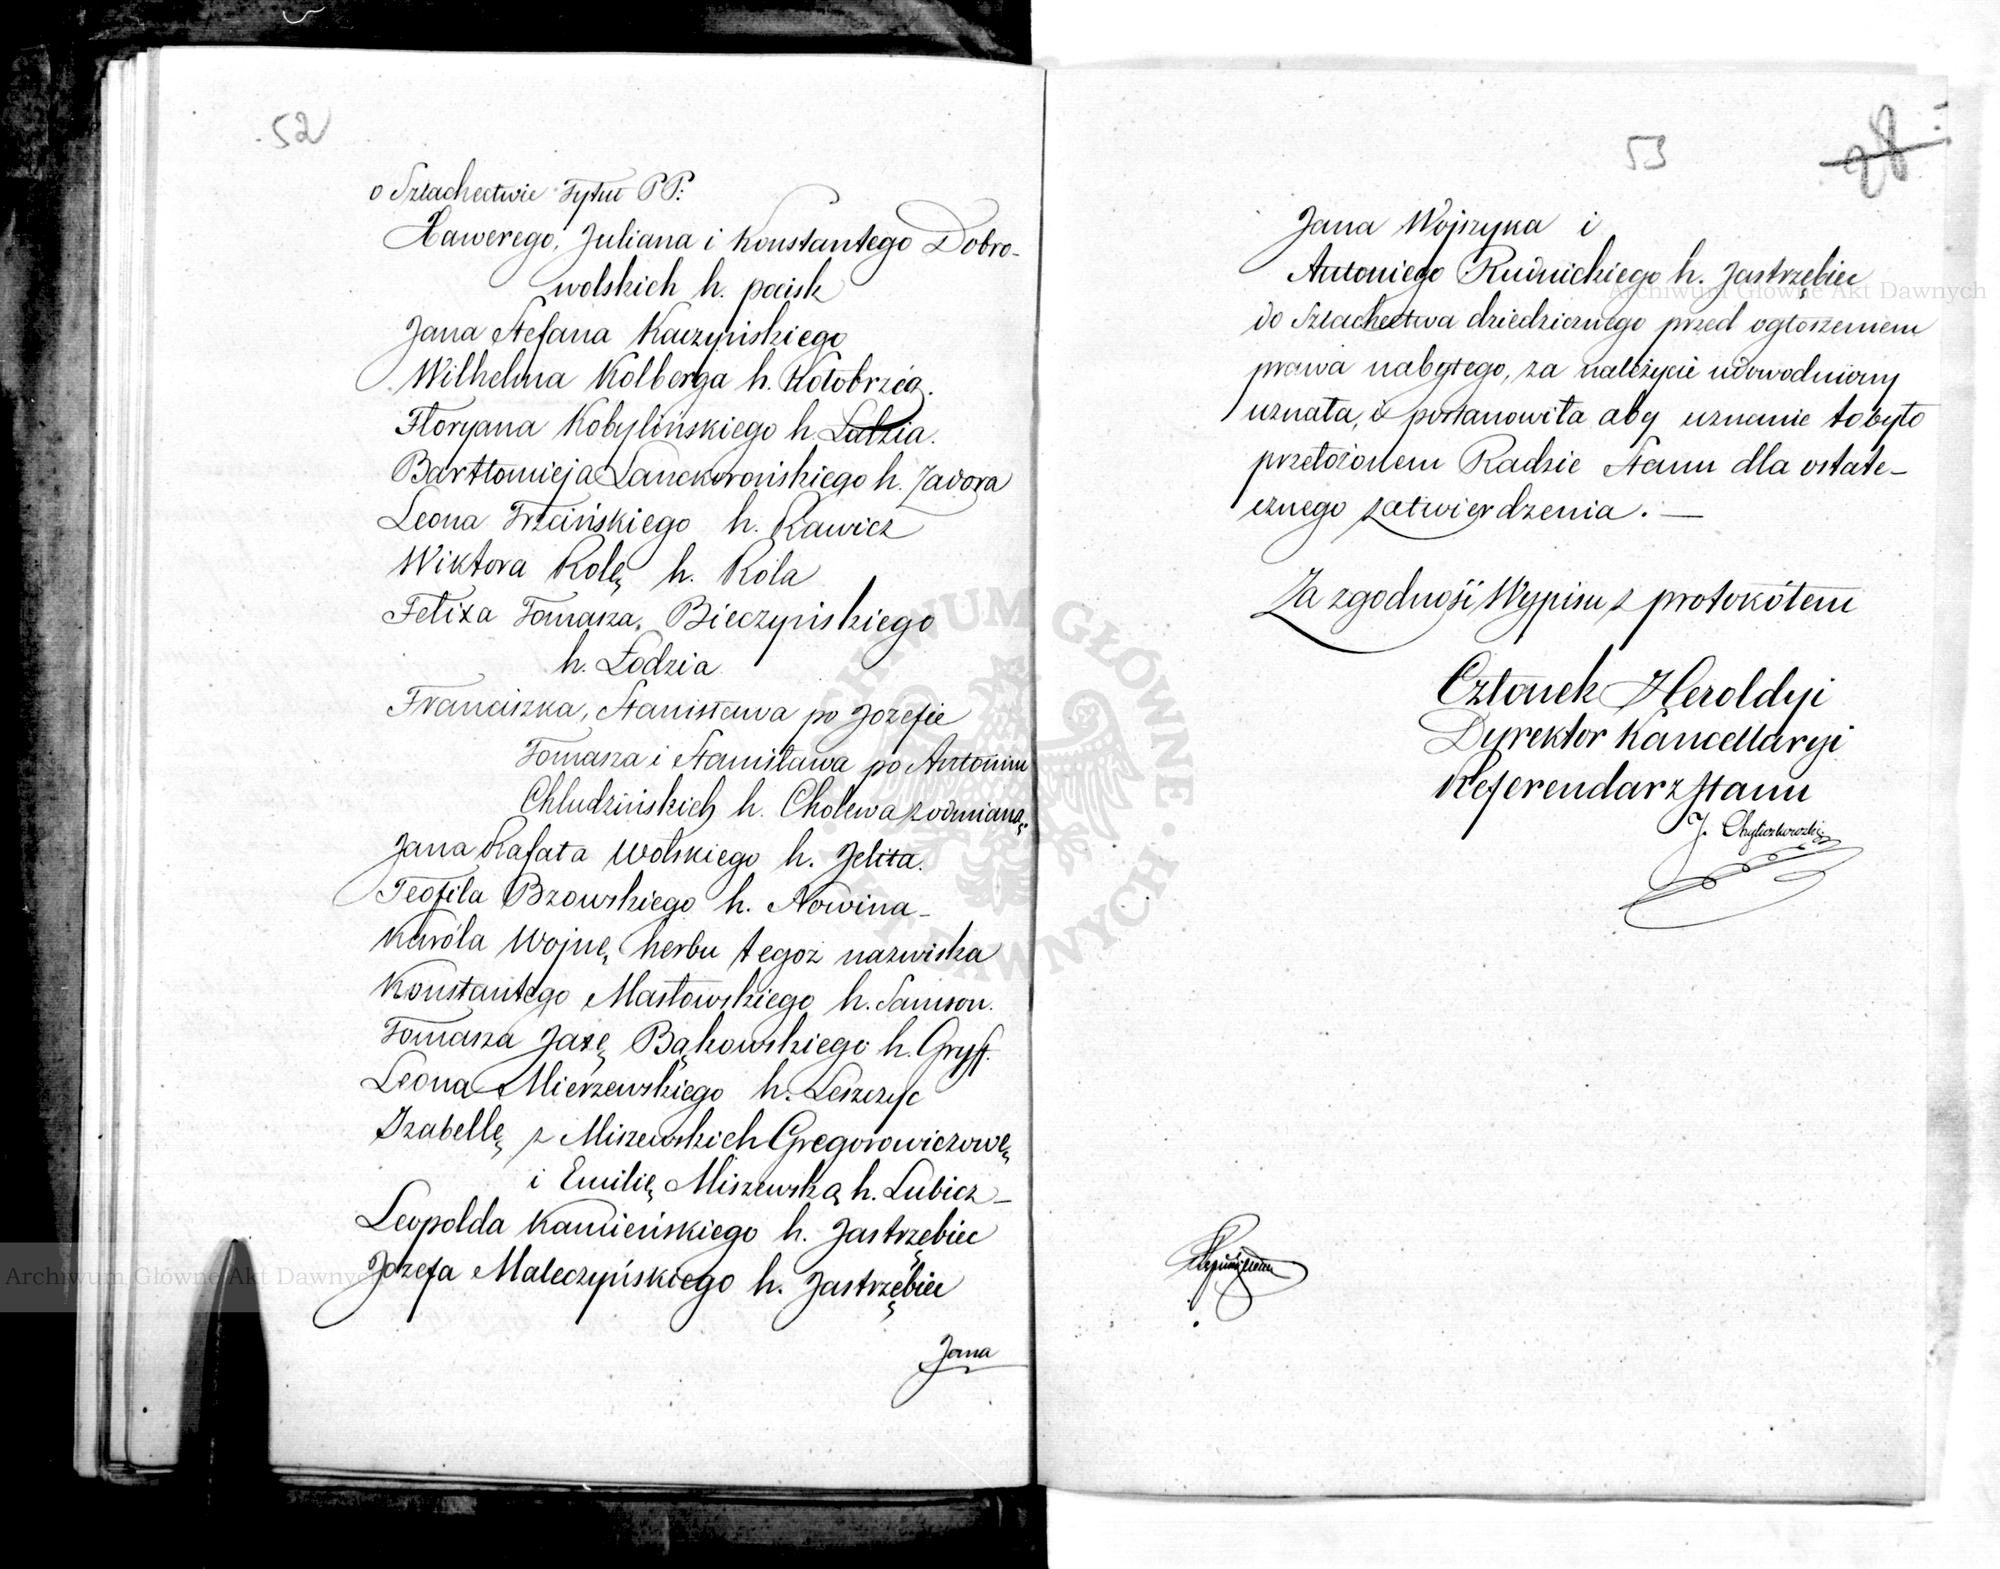 52
o Szlachectwie Tytuł PP:
Xawerego, Juliana i Konstantego Dobro-
wolskich h. pocisk
Jana Stefana Kaczyńskiego
Wilhelma Kolberga h. Kołobrzeg.
Floryana Kobylińskiego h. Łodzia.
Bartłomieja Lanckorońskiego h. Zadora
Leona Trzcińskiego h. Rawicz
Wiktora Rolę h. Rola
Felixa Tomasza Bieczyńskiego
h. Łodzia
Franciszka, Stanisława po Jozefie
Tomasza i Stanisława po Antonim
Chludzińskich h. Cholewa z odmianą.
Jana Rafała Wolskiego h. Jelita.
Teofila Bzowskiego h. Nowina -
Karóla Wojnę herbu tegoż nazwiska
Konstantego Masłowskiego h. Samson.
Tomasza Jaxę Bąkowskiego h. Gryff.
Leona Mierzewskiego h. Leszczyc
Izabellę z Miszewskich Gregorowiczowę
i Emilię Miszewską h. Lubicz -
Leopolda Kamieńskiego h. Jastrzębiec
Józefa Maleczyńskiego h. Jastrzębiec
Jana
53
28
Jana Wojszyka i
Antoniego Rudnickiego h. Jastrzębiec
do Szlachectwa dziedzicznego przed ogłoszeniem
prawa nabytego, za należycie udowodniony
uznała, i postanowiła aby uznanie to było
przełożonem Radzie Stanu dla ostate-
cznego zatwierdzenia. -
Za zgodność Wypisu z protokółem
Członek Heroldyi
Dyrektor Kancellaryi
Referendarz Stanu
Archiwum Główne Akt Dawnych
Archiwum Główne Akt Dawnych
ARCHIWUM GŁÓWNE AKT DAWNYCH